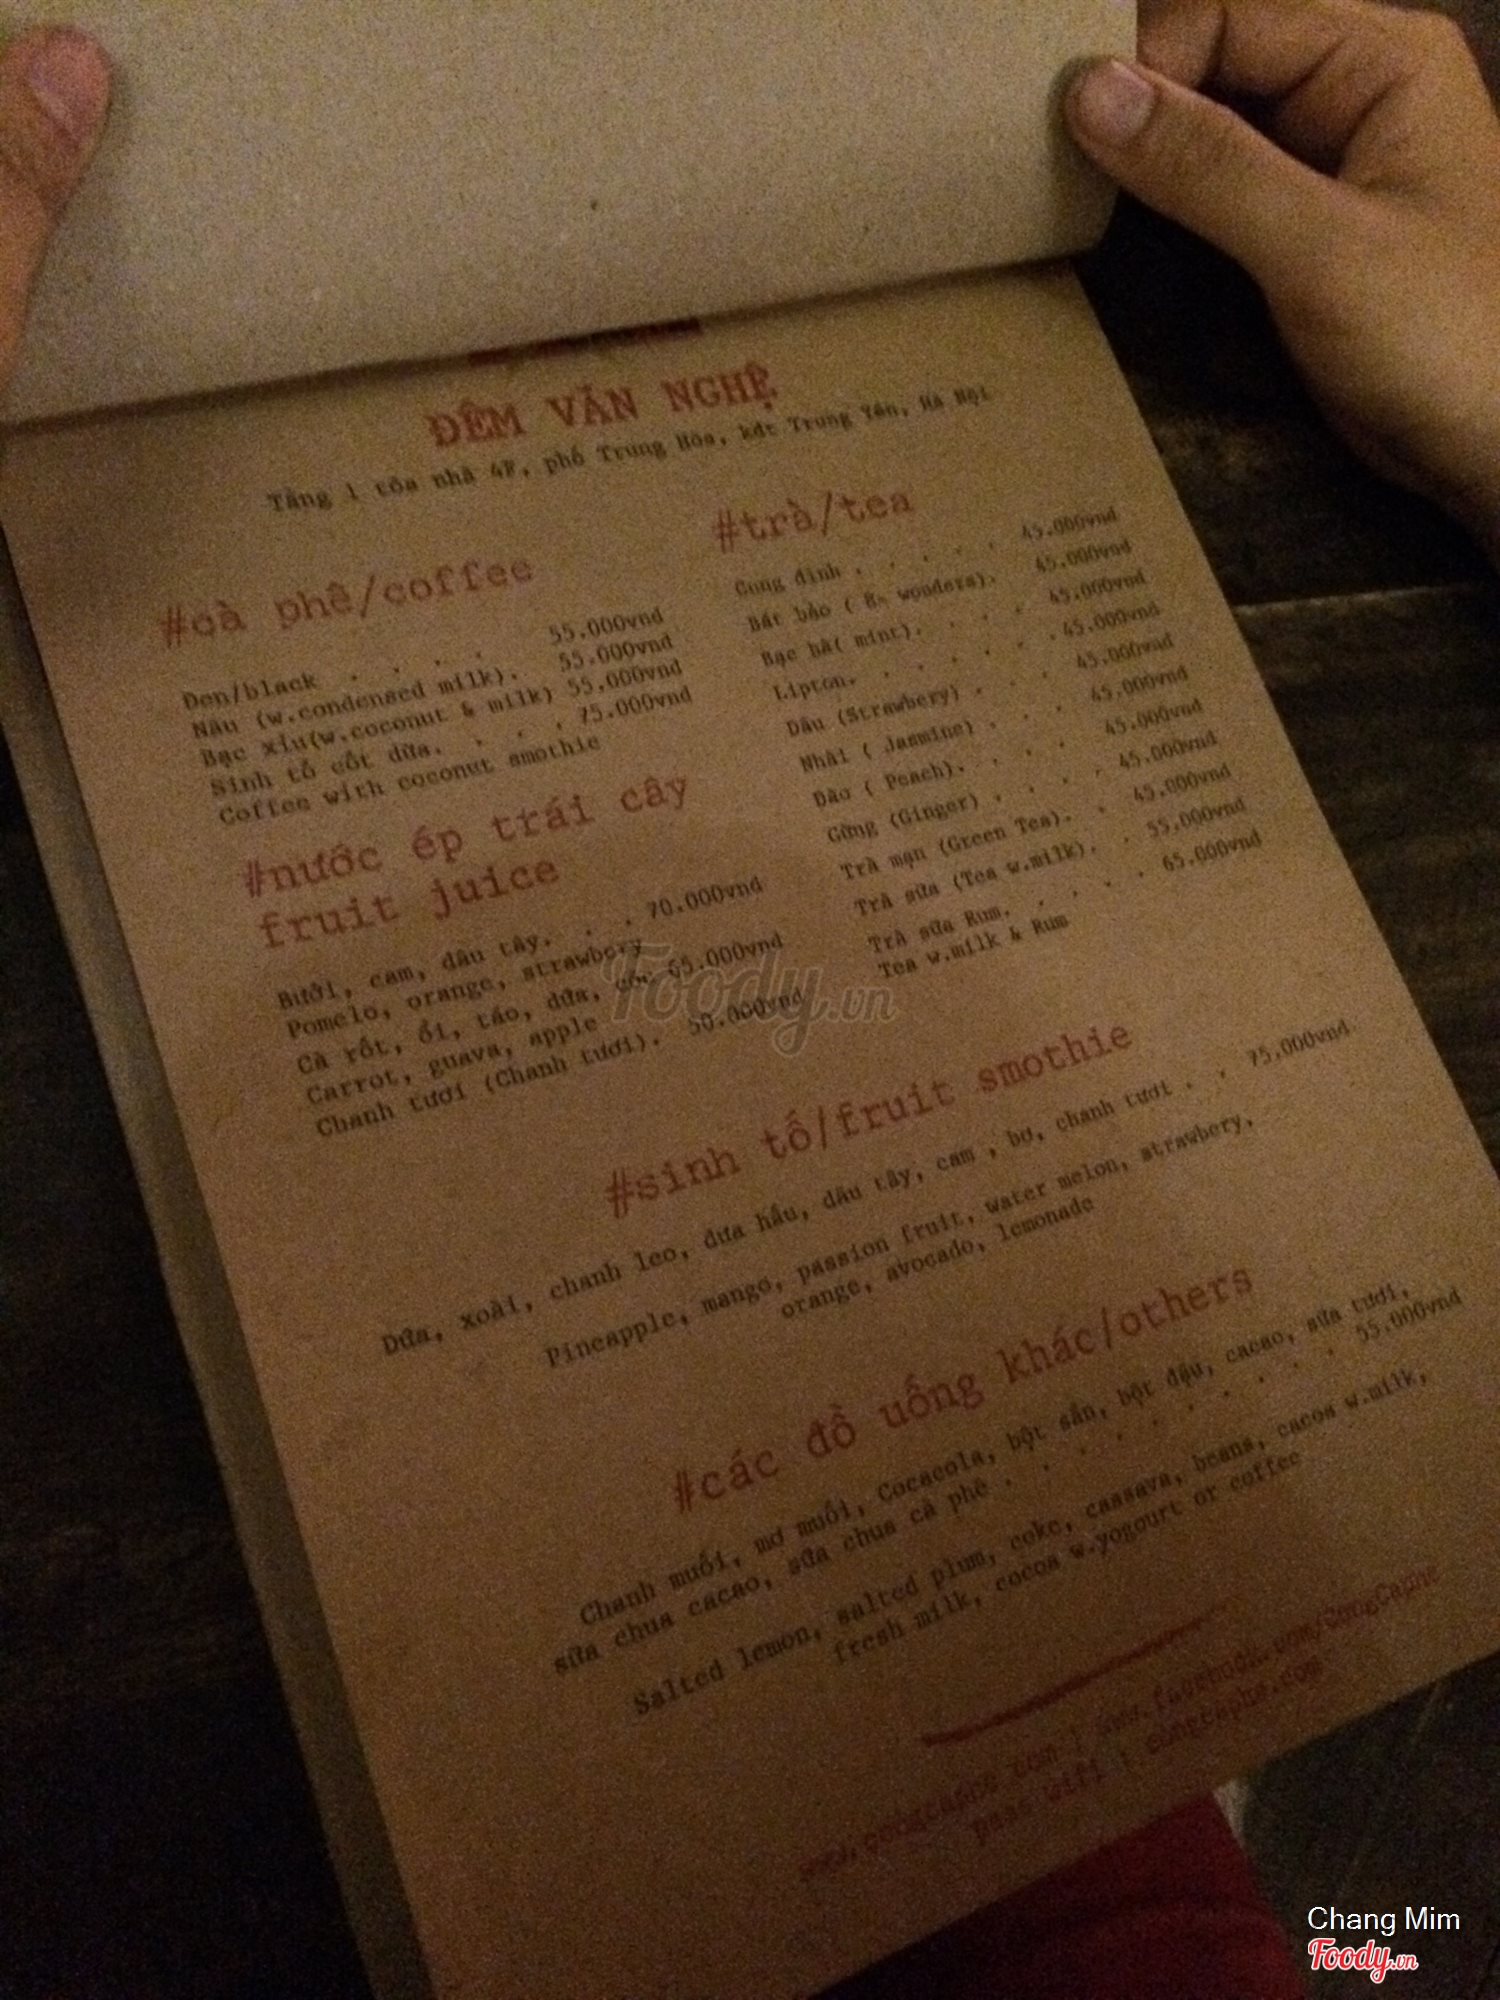 ĐÊM VĂN NGHỆ
Tầng 1 tòa nhà 4F, phố Trung Hòa, kđt Trung Yên, Hà Nội
#cà phê/coffee
Đen/black . . . . 55.000vnd
Nâu (w.condensed milk). 55.000vnd
Bạc xỉu(w.coconut & milk) 55.000vnd
Sinh tố cốt dừa. . . . 75.000vnd
Coffee with coconut smothie
#nước ép trái cây
fruit juice
Bưởi, cam, dâu tây. . . 70.000vnd
Pomelo, orange, strawbery
Cà rốt, ổi, táo, dứa, cóc 65.000vnd
Carrot, guava, apple
Chanh tươi (Chanh tươi). 50.000vnd
#trà/tea
Cung đình . . . . . 45.000vnd
Bát bảo ( 8 wonders). 45.000vnd
Bạc hà( mint). . . . 45.000vnd
Lipton. . . . . . . 45.000vnd
Dâu (Strawbery) . . . 45.000vnd
Nhài ( Jasmine) . . . 45.000vnd
Đào ( Peach). . . . 45.000vnd
Gừng (Ginger) . . . . 45.000vnd
Trà mạn (Green Tea). . 45.000vnd
Trà sữa (Tea w.milk). . 55.000vnd
Trà sữa Rum. . . . . 65.000vnd
Tea w.milk & Rum
#sinh tố/fruit smothie
Dứa, xoài, chanh leo, dưa hấu, dâu tây, cam , bơ, chanh tươi . . 75.000vnd
Pineapple, mango, passion fruit, water melon, strawbery,
orange, avocado, lemonade
#các đồ uống khác/others
Chanh muối, mơ muối, Cocacola, bột sắn, bột đậu, cacao, sữa tươi,
sữa chua cacao, sữa chua cà phê . . . . . . . . . . 55.000vnd
Salted lemon, salted plum, coke, cassava, beans, cacoa w.milk,
fresh milk, cocoa w.yogourt or coffee
www.congcaphe.com | www.facebook.com/CongCaphe
pass wifi : congcaphe.com
Foody.vn
Chang Mim
Foody.vn